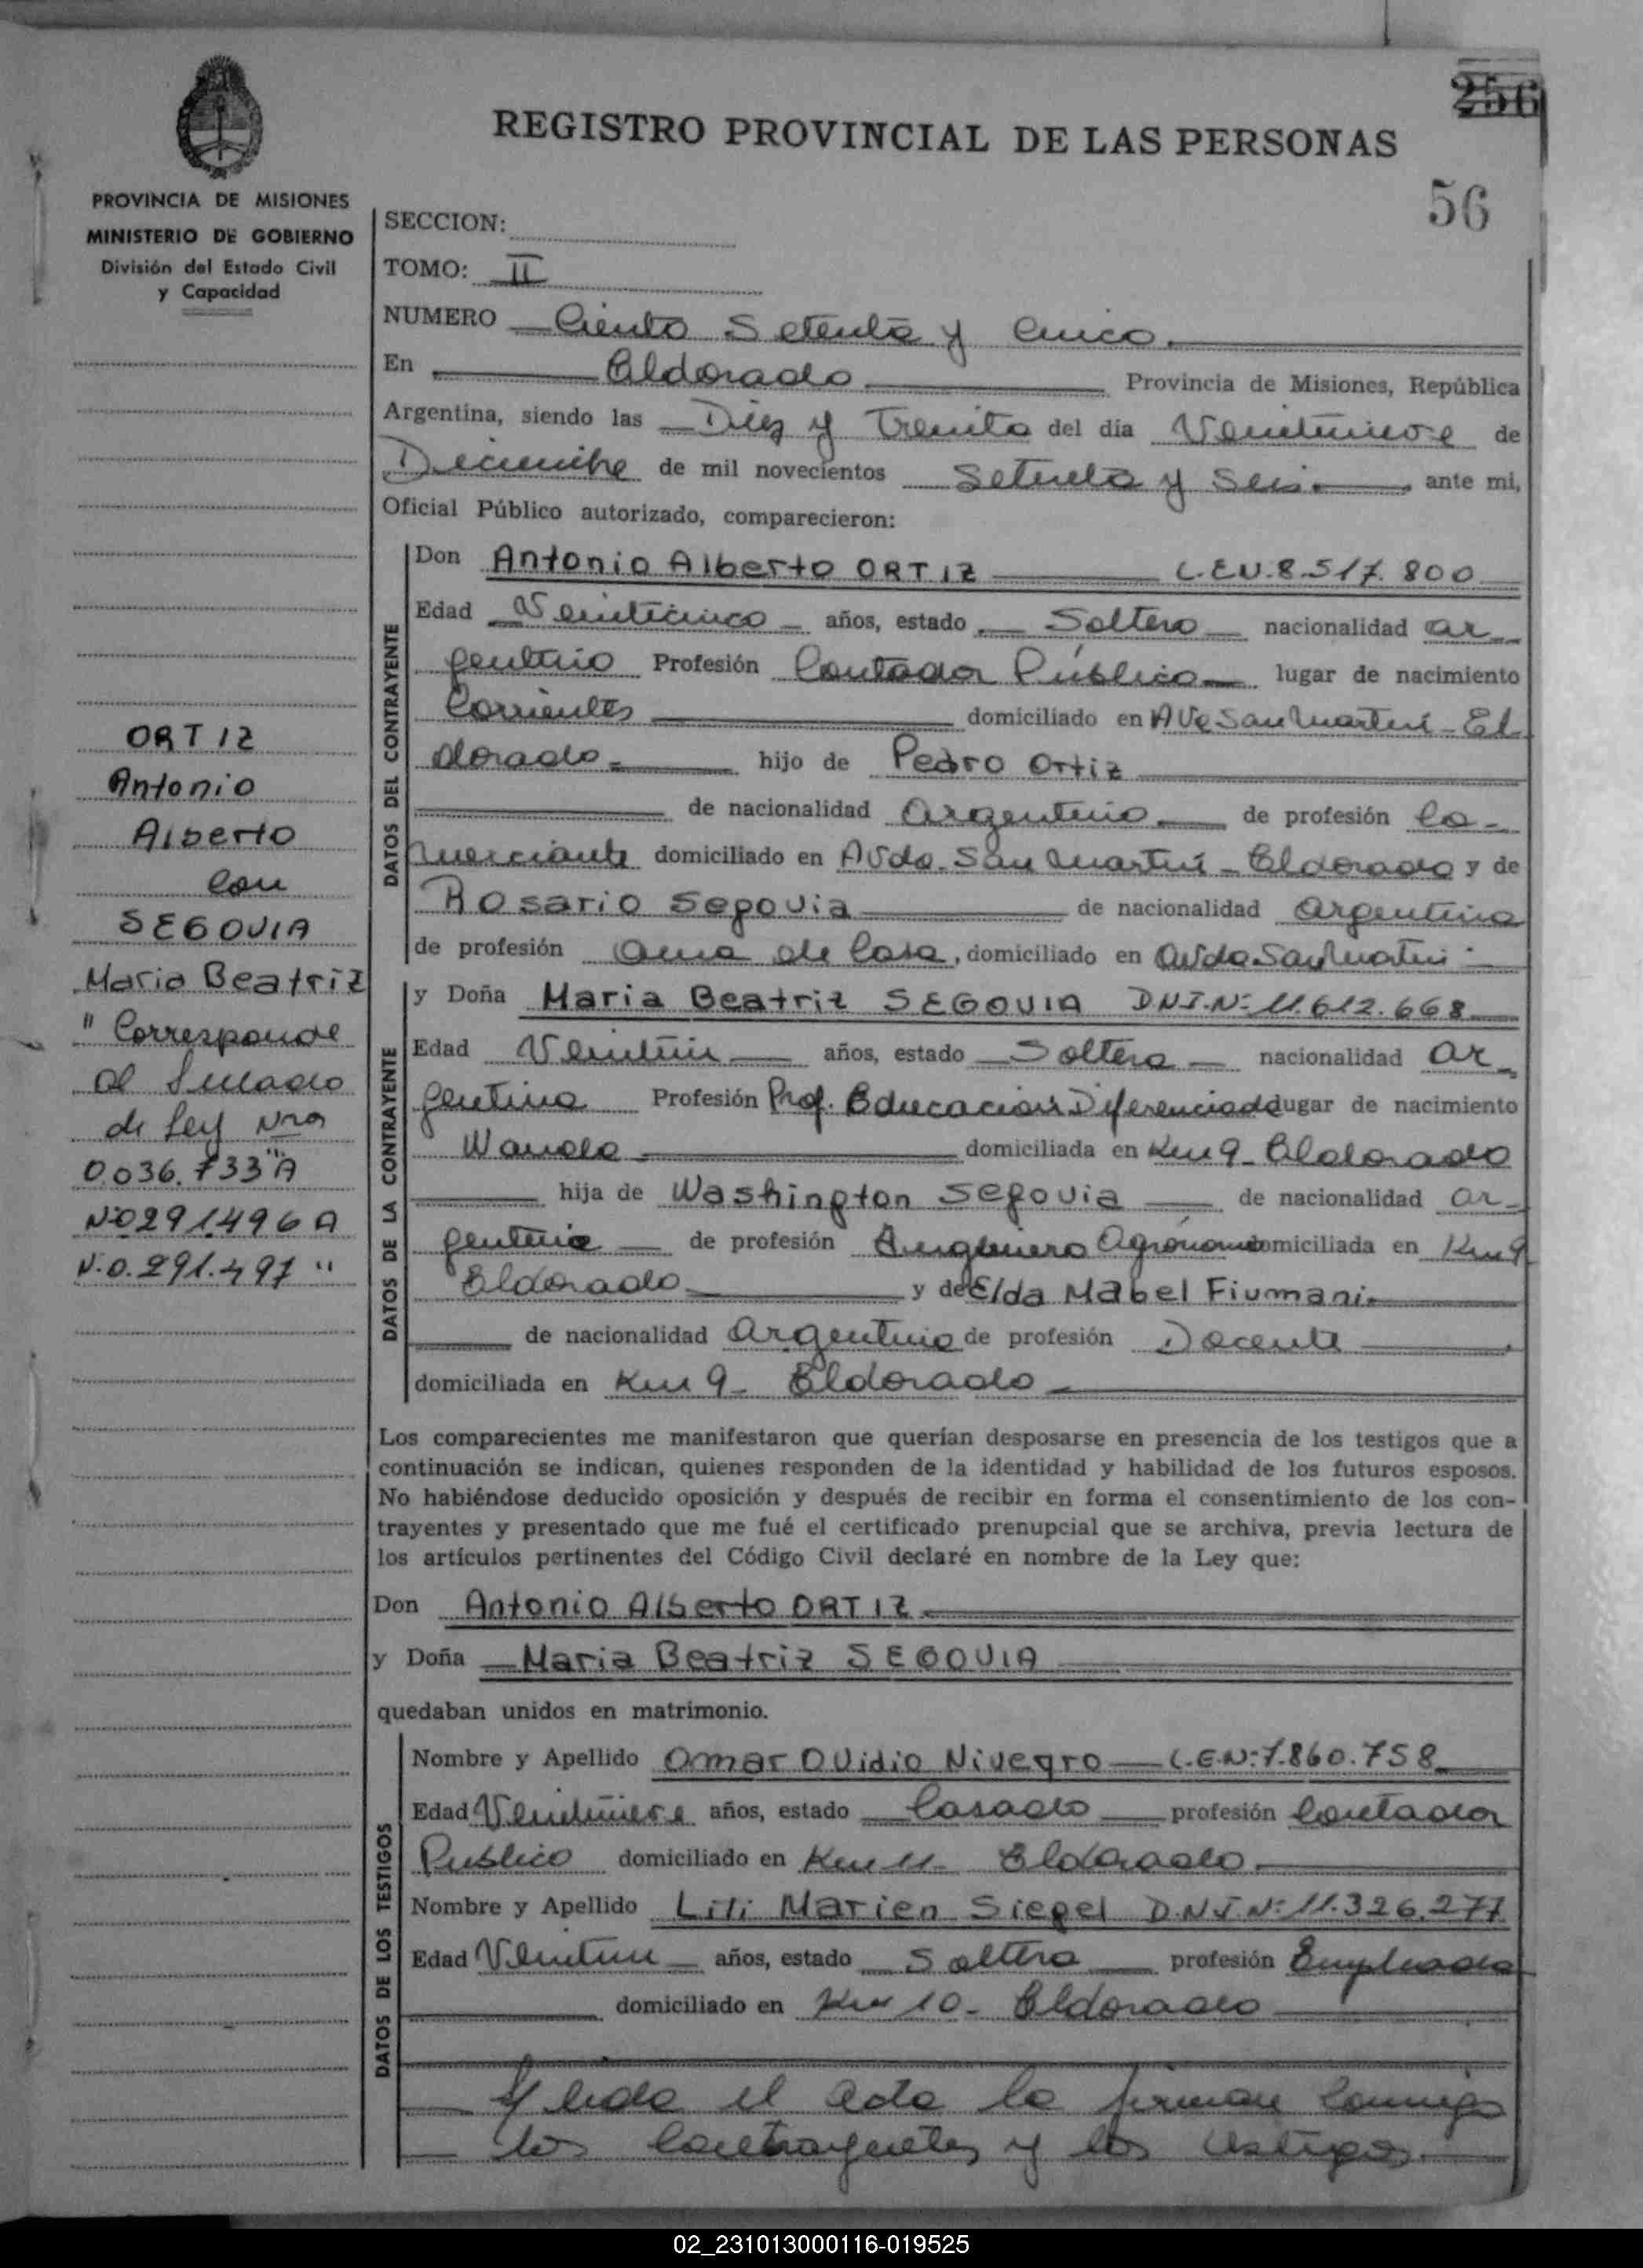 256
REGISTRO PROVINCIAL DE LAS PERSONAS
56
PROVINCIA DE MISIONES
MINISTERIO DE GOBIERNO
División del Estado Civil
y Capacidad
ORTIZ
Antonio
Alberto
con
SEGOVIA
Maria Beatriz
" Corresponde
al Sellado
de Ley Nro
0.036.733"A
Nº0291.496 A
N.0.291.497 "
SECCION:
TOMO: II
NUMERO Ciento Setenta y Cinco.
En Eldorado Provincia de Misiones, República
Argentina, siendo las Diez y Treinta del día Veintinueve de
Diciembre de mil novecientos Setenta y Seis. ante mi,
Oficial Público autorizado, comparecieron:
DATOS DEL CONTRAYENTE
Don Antonio Alberto ORTIZ L.E.N.8.517.800
Edad Veinticinco años, estado Soltero nacionalidad ar-
gentino Profesión Contador Público lugar de nacimiento
Corrientes domiciliado en Ave San Martin - El
dorado hijo de Pedro Ortiz
de nacionalidad Argentino de profesión Co-
merciante domiciliado en Avda. San Martin - Eldorado y de
Rosario Segovia de nacionalidad argentina
de profesión ama de Casa, domiciliado en avda San Martin -
DATOS DE LA CONTRAYENTE
y Doña Maria Beatriz SEGOVIA D.N.I.Nº 11.612.668
Edad Veintiun años, estado Soltera nacionalidad ar-
gentina Profesión Prof. Educacion Diferenciada lugar de nacimiento
Wanda domiciliada en Km 9 - Eldorado
hija de Washington Segovia de nacionalidad ar-
gentina de profesión Ingeniero Agrónomo domiciliada en Km 9
Eldorado y de Elda Mabel Fiumani.
de nacionalidad argentina de profesión Docente
domiciliada en Km 9 - Eldorado
Los comparecientes me manifestaron que querían desposarse en presencia de los testigos que a
continuación se indican, quienes responden de la identidad y habilidad de los futuros esposos.
No habiéndose deducido oposición y después de recibir en forma el consentimiento de los con-
trayentes y presentado que me fué el certificado prenupcial que se archiva, previa lectura de
los artículos pertinentes del Código Civil declaré en nombre de la Ley que:
Don Antonio Alberto ORTIZ
y Doña Maria Beatriz SEGOVIA
quedaban unidos en matrimonio.
DATOS DE LOS TESTIGOS
Nombre y Apellido Omar Ovidio Nivegro L.E.Nº:7.860.758
Edad Veintinueve años, estado Casado profesión Contador
Publico domiciliado en Km 11 - Eldorado
Nombre y Apellido Lili Marien Siegel D.N.I.Nº 11.326.277
Edad Veintiun años, estado Soltera profesión Empleada
domiciliado en Km 10 - Eldorado
Y leida el acta la firman conmigo
los contrayentes y los testigos.
02_231013000116-019525